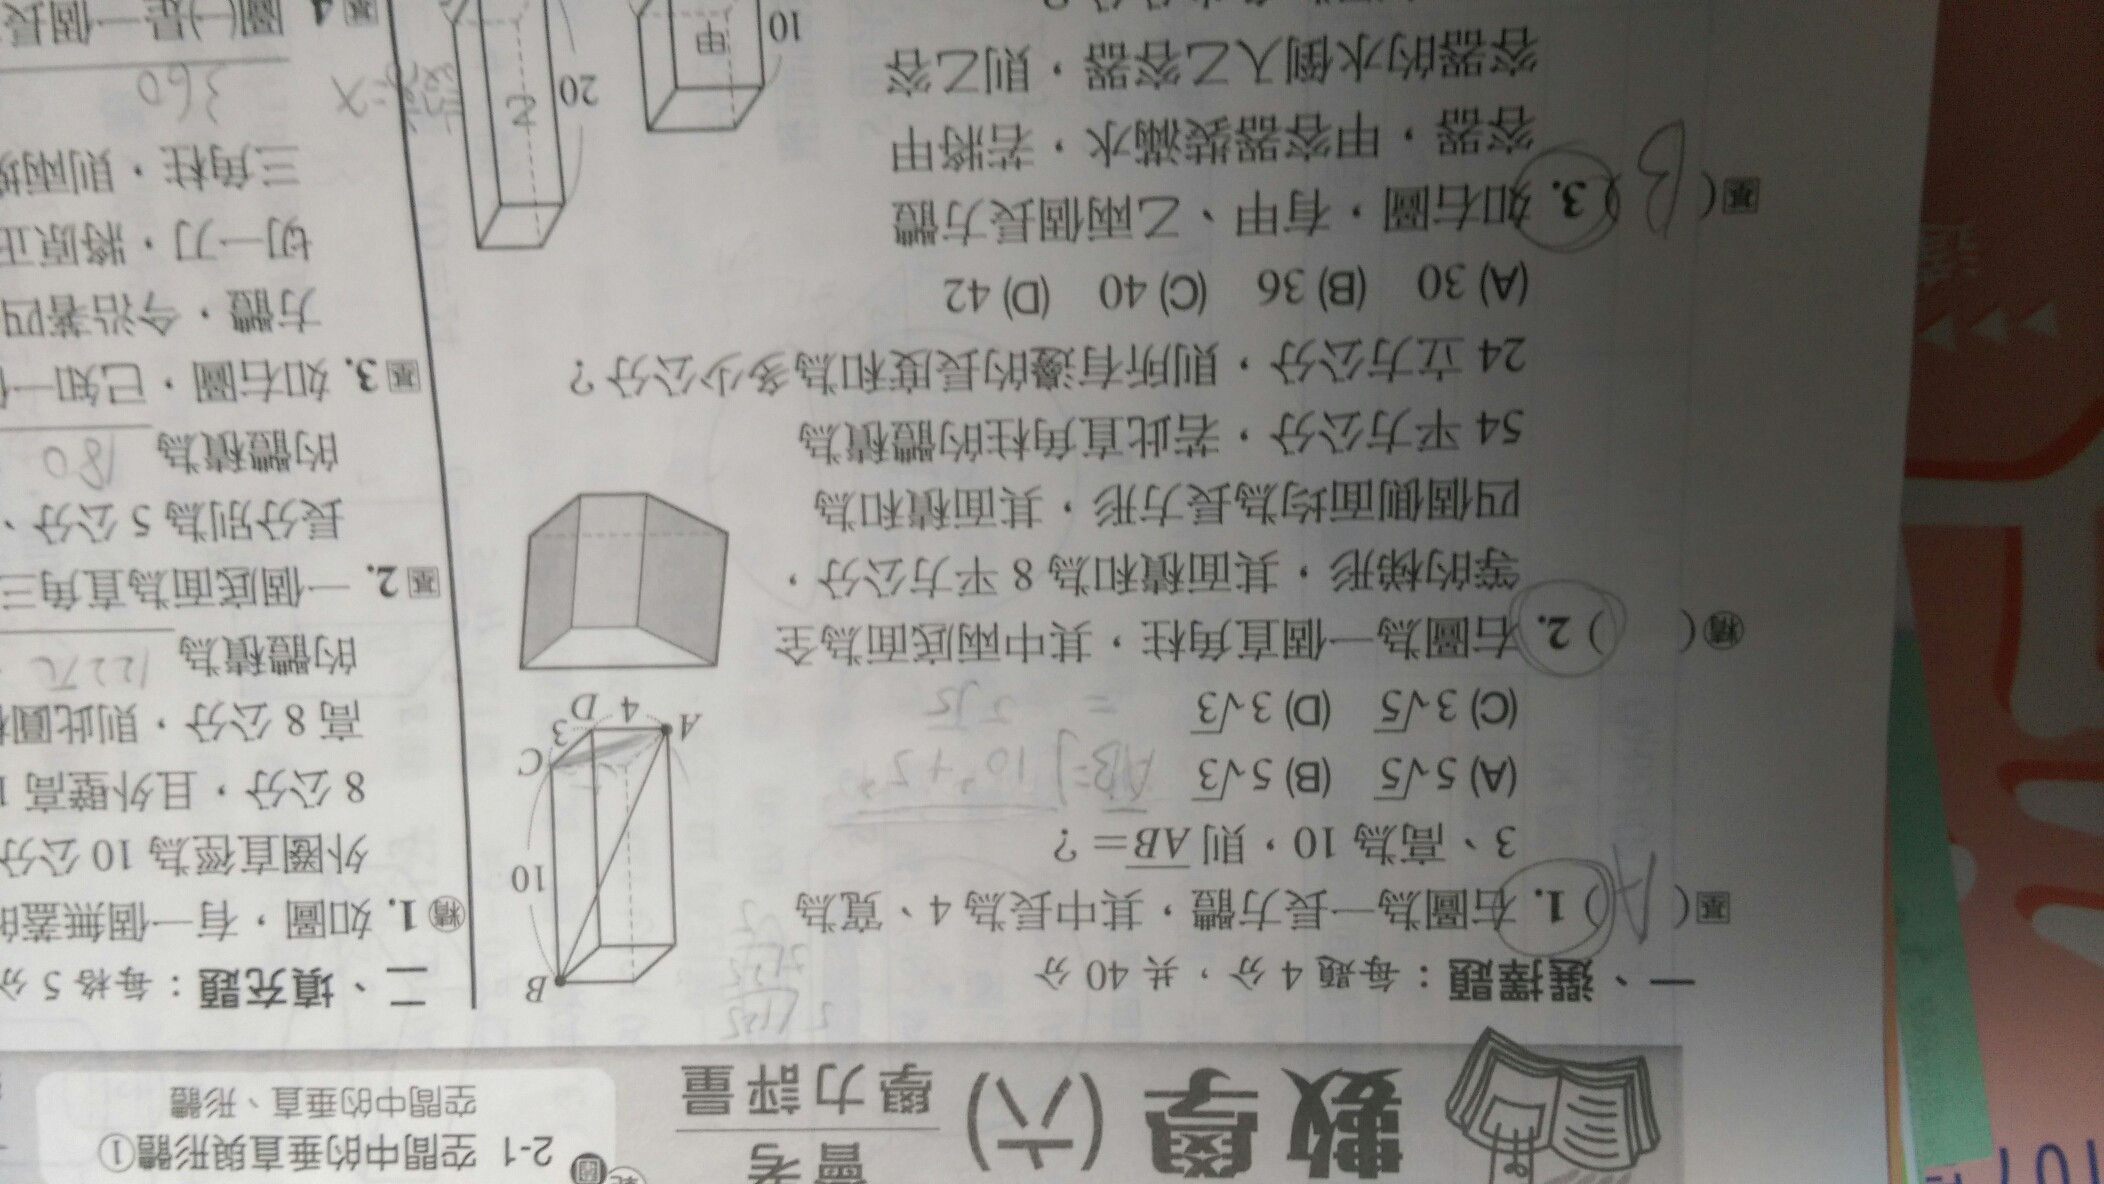 數學(六)
會考
學力評量
2-1 空間中的垂直與形體①
空間中的垂直、形體
一、選擇題:每題 4 分,共 40 分
基( A )1. 右圖為一長方體,其中長為 4、寬為
3、高為 10,則 AB=?
(A) 5√5 (B) 5√3
(C) 3√5 (D) 3√3
AB=√10²+5²
= 5√5
B
10
C
3
D
4
A
精( )2. 右圖為一個直角柱,其中兩底面為全
等的梯形,其面積和為 8 平方公分,
四個側面均為長方形,其面積和為
54 平方公分,若此直角柱的體積為
24 立方公分,則所有邊的長度和為多少公分?
(A) 30 (B) 36 (C) 40 (D) 42
基( B )3. 如右圖,有甲、乙兩個長方體
容器,甲容器裝滿水,若將甲
容器的水倒入乙容器,則乙容
甲
10
乙
20
二、填充題:每格 5 分
精1. 如圖,有一個無蓋的
外圈直徑為 10 公分
8 公分,且外壁高
高 8 公分,則此圓
的體積為 122π
基2. 一個底面為直角三
長分別為 5 公分、
的體積為 180
基3. 如右圖,已知一
方體,今沿著四
切一刀,將原正
三角柱,則兩
360
基4. 圖(一)是一個長